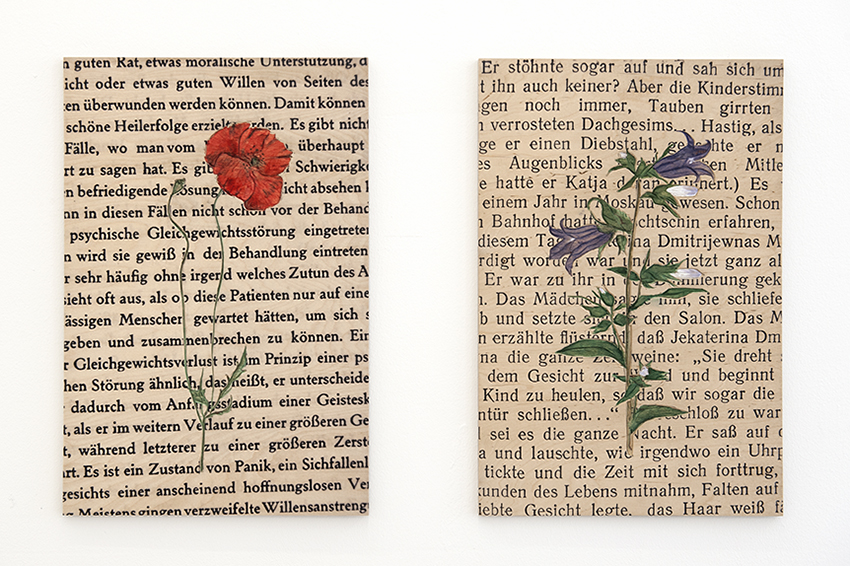 n guten Rat, etwas moralische Unterstützung, d
icht oder etwas guten Willen von Seiten des
en überwunden werden können. Damit können
schöne Heilerfolge erzielt werden. Es gibt nicht
Fälle, wo man vom überhaupt
rt zu sagen hat. Es gibt Schwierigk
n befriedigende Lösung nicht absehen
nn in diesen Fällen nicht schon vor der Behand
psychische Gleichgewichtsstörung eingetreten
n wird sie gewiß in der Behandlung eintreten
r sehr häufig ohne irgend welches Zutun des A
sieht oft aus, als ob diese Patienten nur auf eine
lässigen Menschen gewartet hätten, um sich s
geben und zusammenbrechen zu können. Ein
r Gleichgewichtsverlust ist im Prinzip einer ps
hen Störung ähnlich, das heißt, er unterscheide
dadurch vom Anfangsstadium einer Geistesk
t, als er im weitern Verlauf zu einer größeren Ge
t, während letzterer zu einer größeren Zerst
rt. Es ist ein Zustand von Panik, ein Sichfallenl
gesichts einer anscheinend hoffnungslosen Ver
Meistens gingen verzweifelte Willensanstreng
Er stöhnte sogar auf und sah sich um
t ihn auch keiner? Aber die Kinderstimm
gen noch immer, Tauben girrten
verrosteten Dachgesims... Hastig, als
ge er einen Diebstahl, gedachte er n
es Augenblicks Mitle
e hatte er Katja daran erinnert.) Es
einem Jahr in Moskau gewesen. Schon
Bahnhof hatte erfahren,
diesem Tag Dmitrijewnas M
rdigt worden war und sie jetzt ganz al
Er war zu ihr in gek
n. Das Mädchen sagte ihm, sie schliefe
b und setzte sich in den Salon. Das M
n erzählte flüsternd, daß Jekaterina Dm
na die ganze Zeit weine: „Sie dreht
dem Gesicht zur Wand und beginnt
Kind zu heulen, so daß wir sogar die
ntür schließen...“ beschloß zu war
sei es die ganze Nacht. Er saß auf
a und lauschte, wie irgendwo ein Uhrp
tickte und die Zeit mit sich forttrug,
kunden des Lebens mitnahm, Falten auf
iebte Gesicht legte, das Haar weiß fä